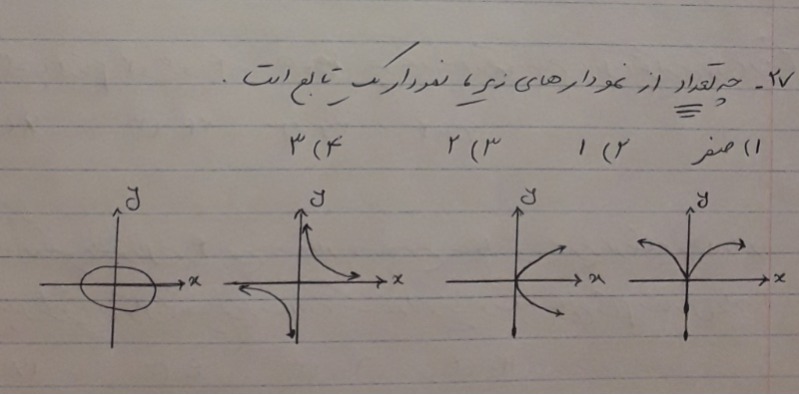 ۲۷- چه تعداد از نمودارهای زیر، نمودار یک تابع است.
۱) صفر ۲) ۱ ۳) ۲ ۴) ۳
y y y y
x x x x